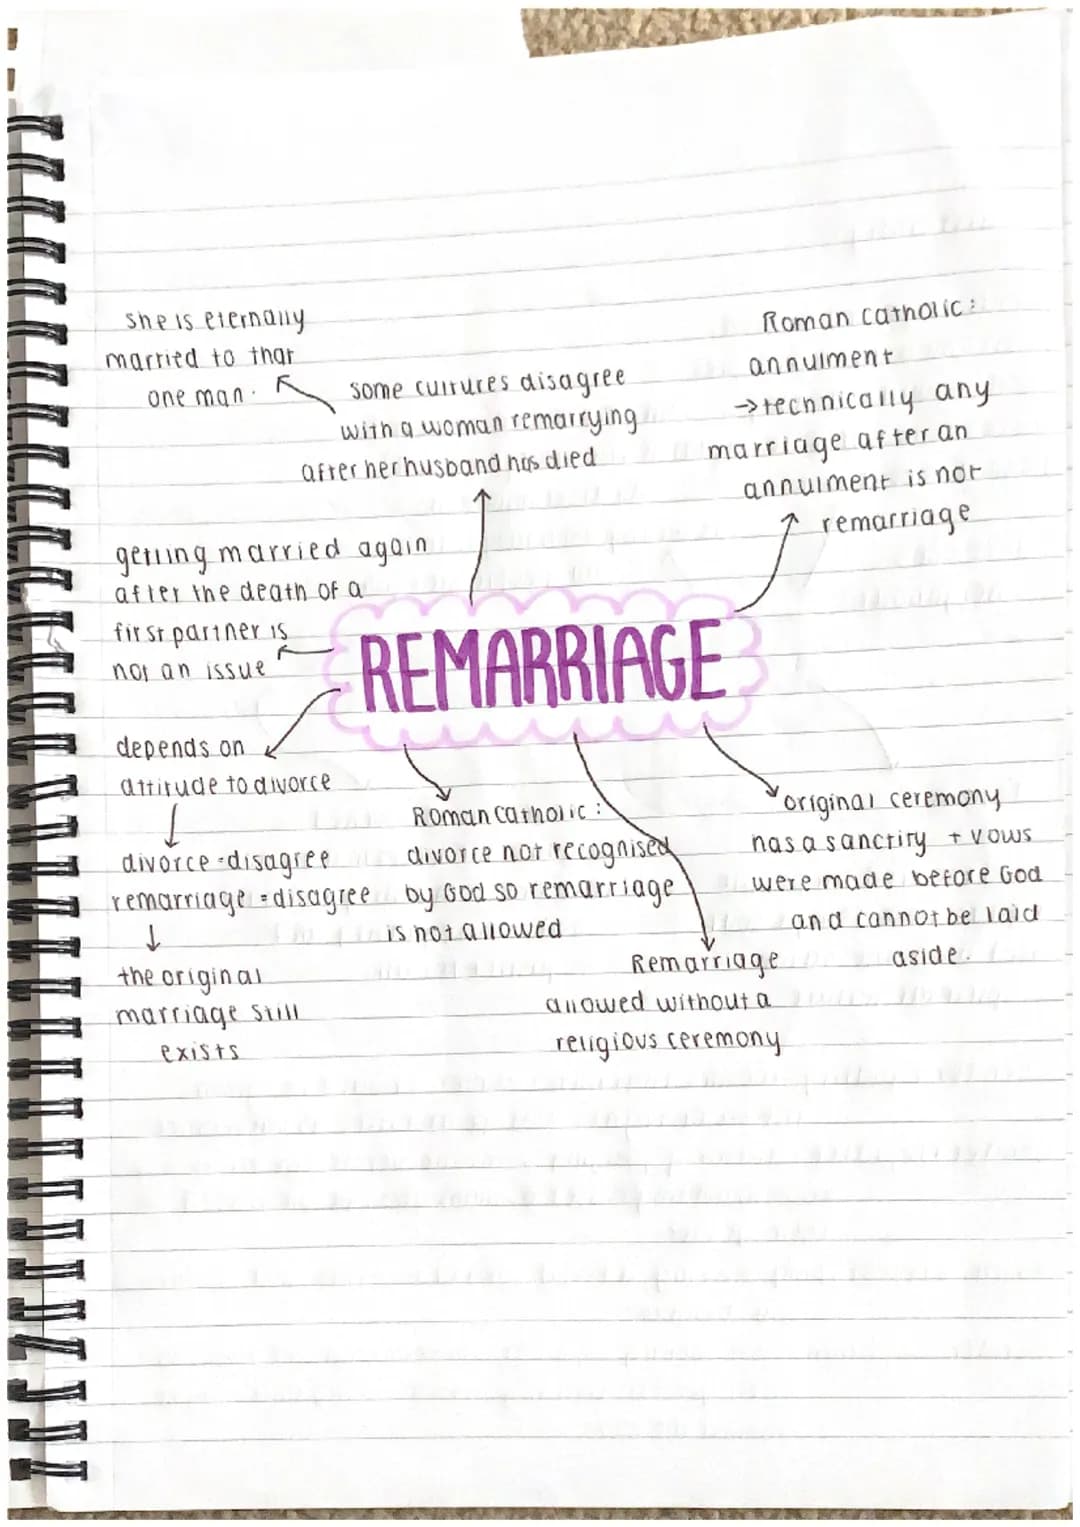 she is eternally
married to that
one man.
some cultures disagree
with a woman remarrying
after her husband has died
Roman Catholic:
annulment
→technically any
marriage after an
annulment is not
remarriage
getting married again
after the death of a
first partner is
not an issue
REMARRIAGE
depends on
attitude to divorce
divorce = disagree
remarriage = disagree
the original
marriage still
exists
Roman Catholic:
divorce not recognised
by God so remarriage
is not allowed
Remarriage
allowed without a
religious ceremony
original ceremony
has a sanctity + vows
were made before God
and cannot be laid
aside.